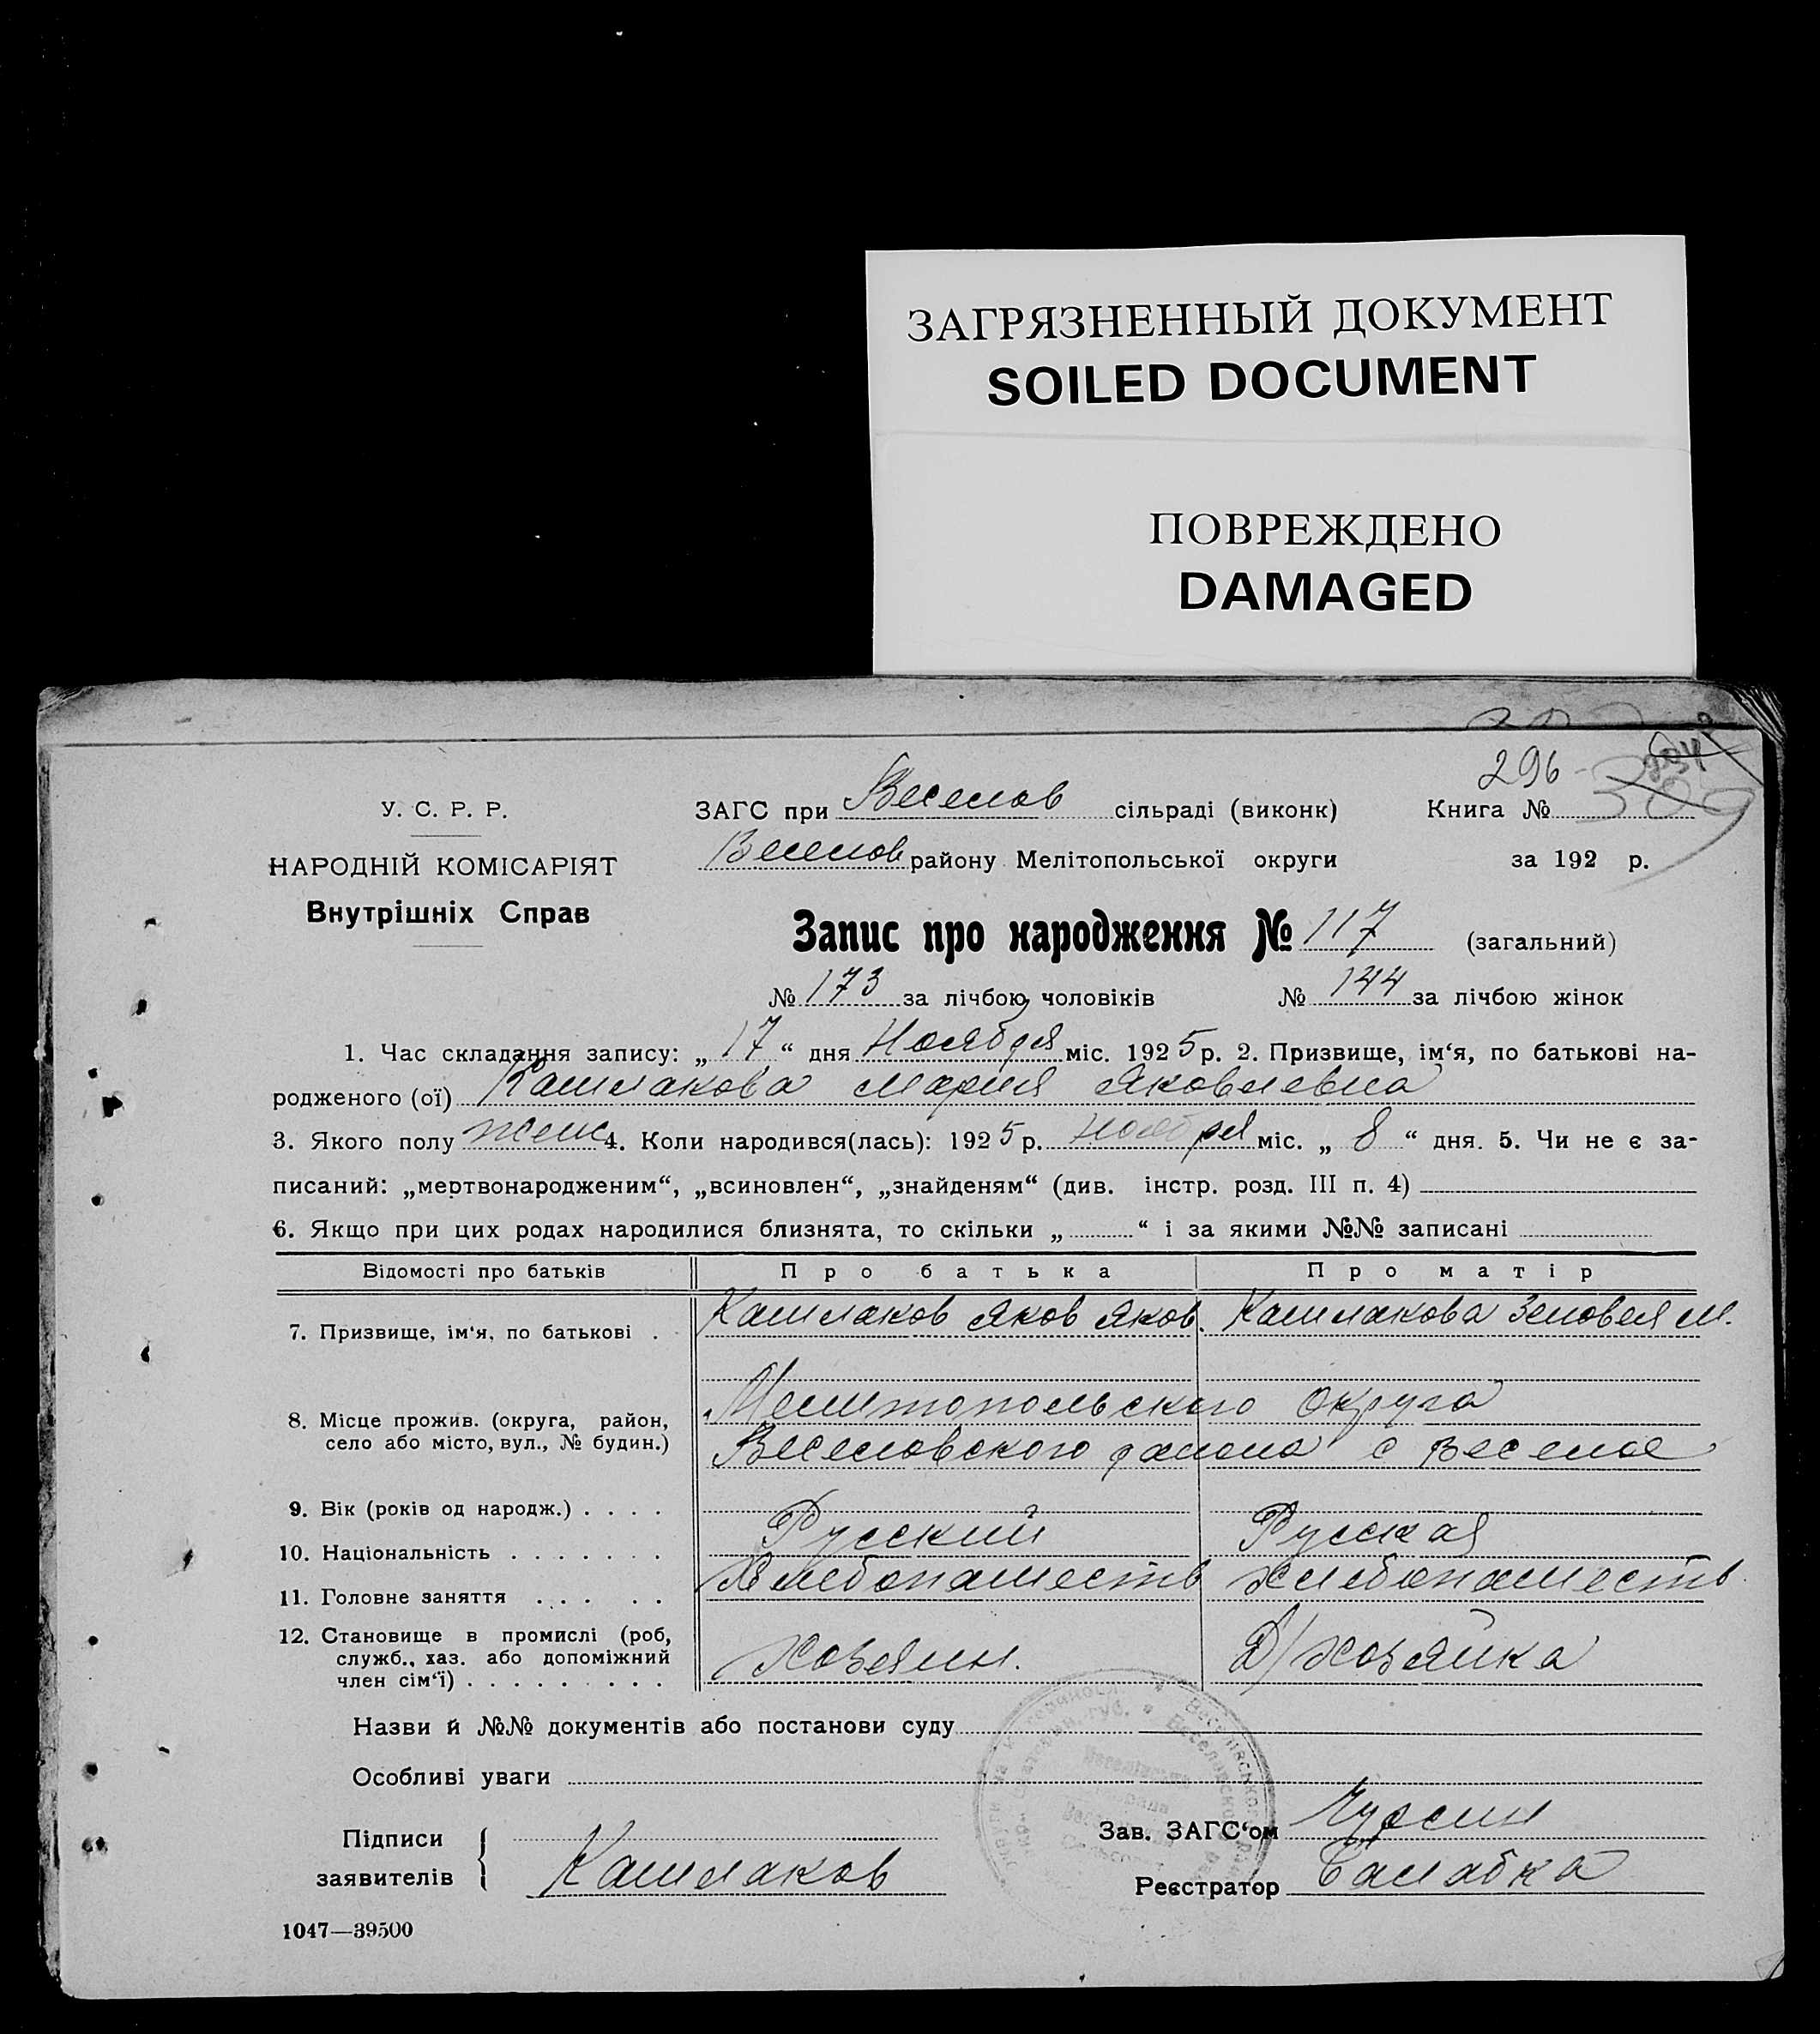 ЗАГРЯЗНЕННЫЙ ДОКУМЕНТ
SOILED DOCUMENT
ПОВРЕЖДЕНО
DAMAGED
296
У. С. Р. Р.
ЗАГС при Веселов сільраді (виконк)
Книга № 309
НАРОДНІЙ КОМІСАРІЯТ
Веселов району Мелітопольської округи
за 192 р.
Внутрішніх Справ
Запис про народження № 117 (загальний)
№ 173 за лічбою чоловіків № 144 за лічбою жінок
1. Час складання запису: „ 17 “ дня Ноября міс. 1925 р. 2. Призвище, ім‘я, по батькові на-
родженого (ої) Кашлакова Мария Яковлевна
3. Якого полу женс 4. Коли народився(лась): 1925 р. ноября міс. „ 8 “ дня. 5. Чи не є за-
писаний: „мертвонародженим“, „всиновлен“, „знайденям“ (див. інстр. розд. III п. 4)
6. Якщо при цих родах народилися близнята, то скільки „ “ і за якими №№ записані
Відомості про батьків Про батька Про матір
7. Призвище, ім‘я, по батькові . Кашлаков Яков Яков. Кашлакова Зеновея М.
8. Місце прожив. (округа, район, Мелитопольского округа
село або місто, вул., № будин.) Веселовского района с Веселое
9. Вік (років од народж.) . . . .
10. Національність . . . . . . . Русский Русская
11. Головне заняття . . . . . Хлебопашеств Хлебопашеств
12. Становище в промислі (роб,
служб., хаз. або допоміжний Хозяин. Д/хозяйка
член сім‘ї) . . . . . . . . .
Назви й №№ документів або постанови суду
Особливі уваги
Підписи
Зав. ЗАГС‘ом Чурсин
заявителів Кашлаков
Реєстратор Балабка
1047—39500